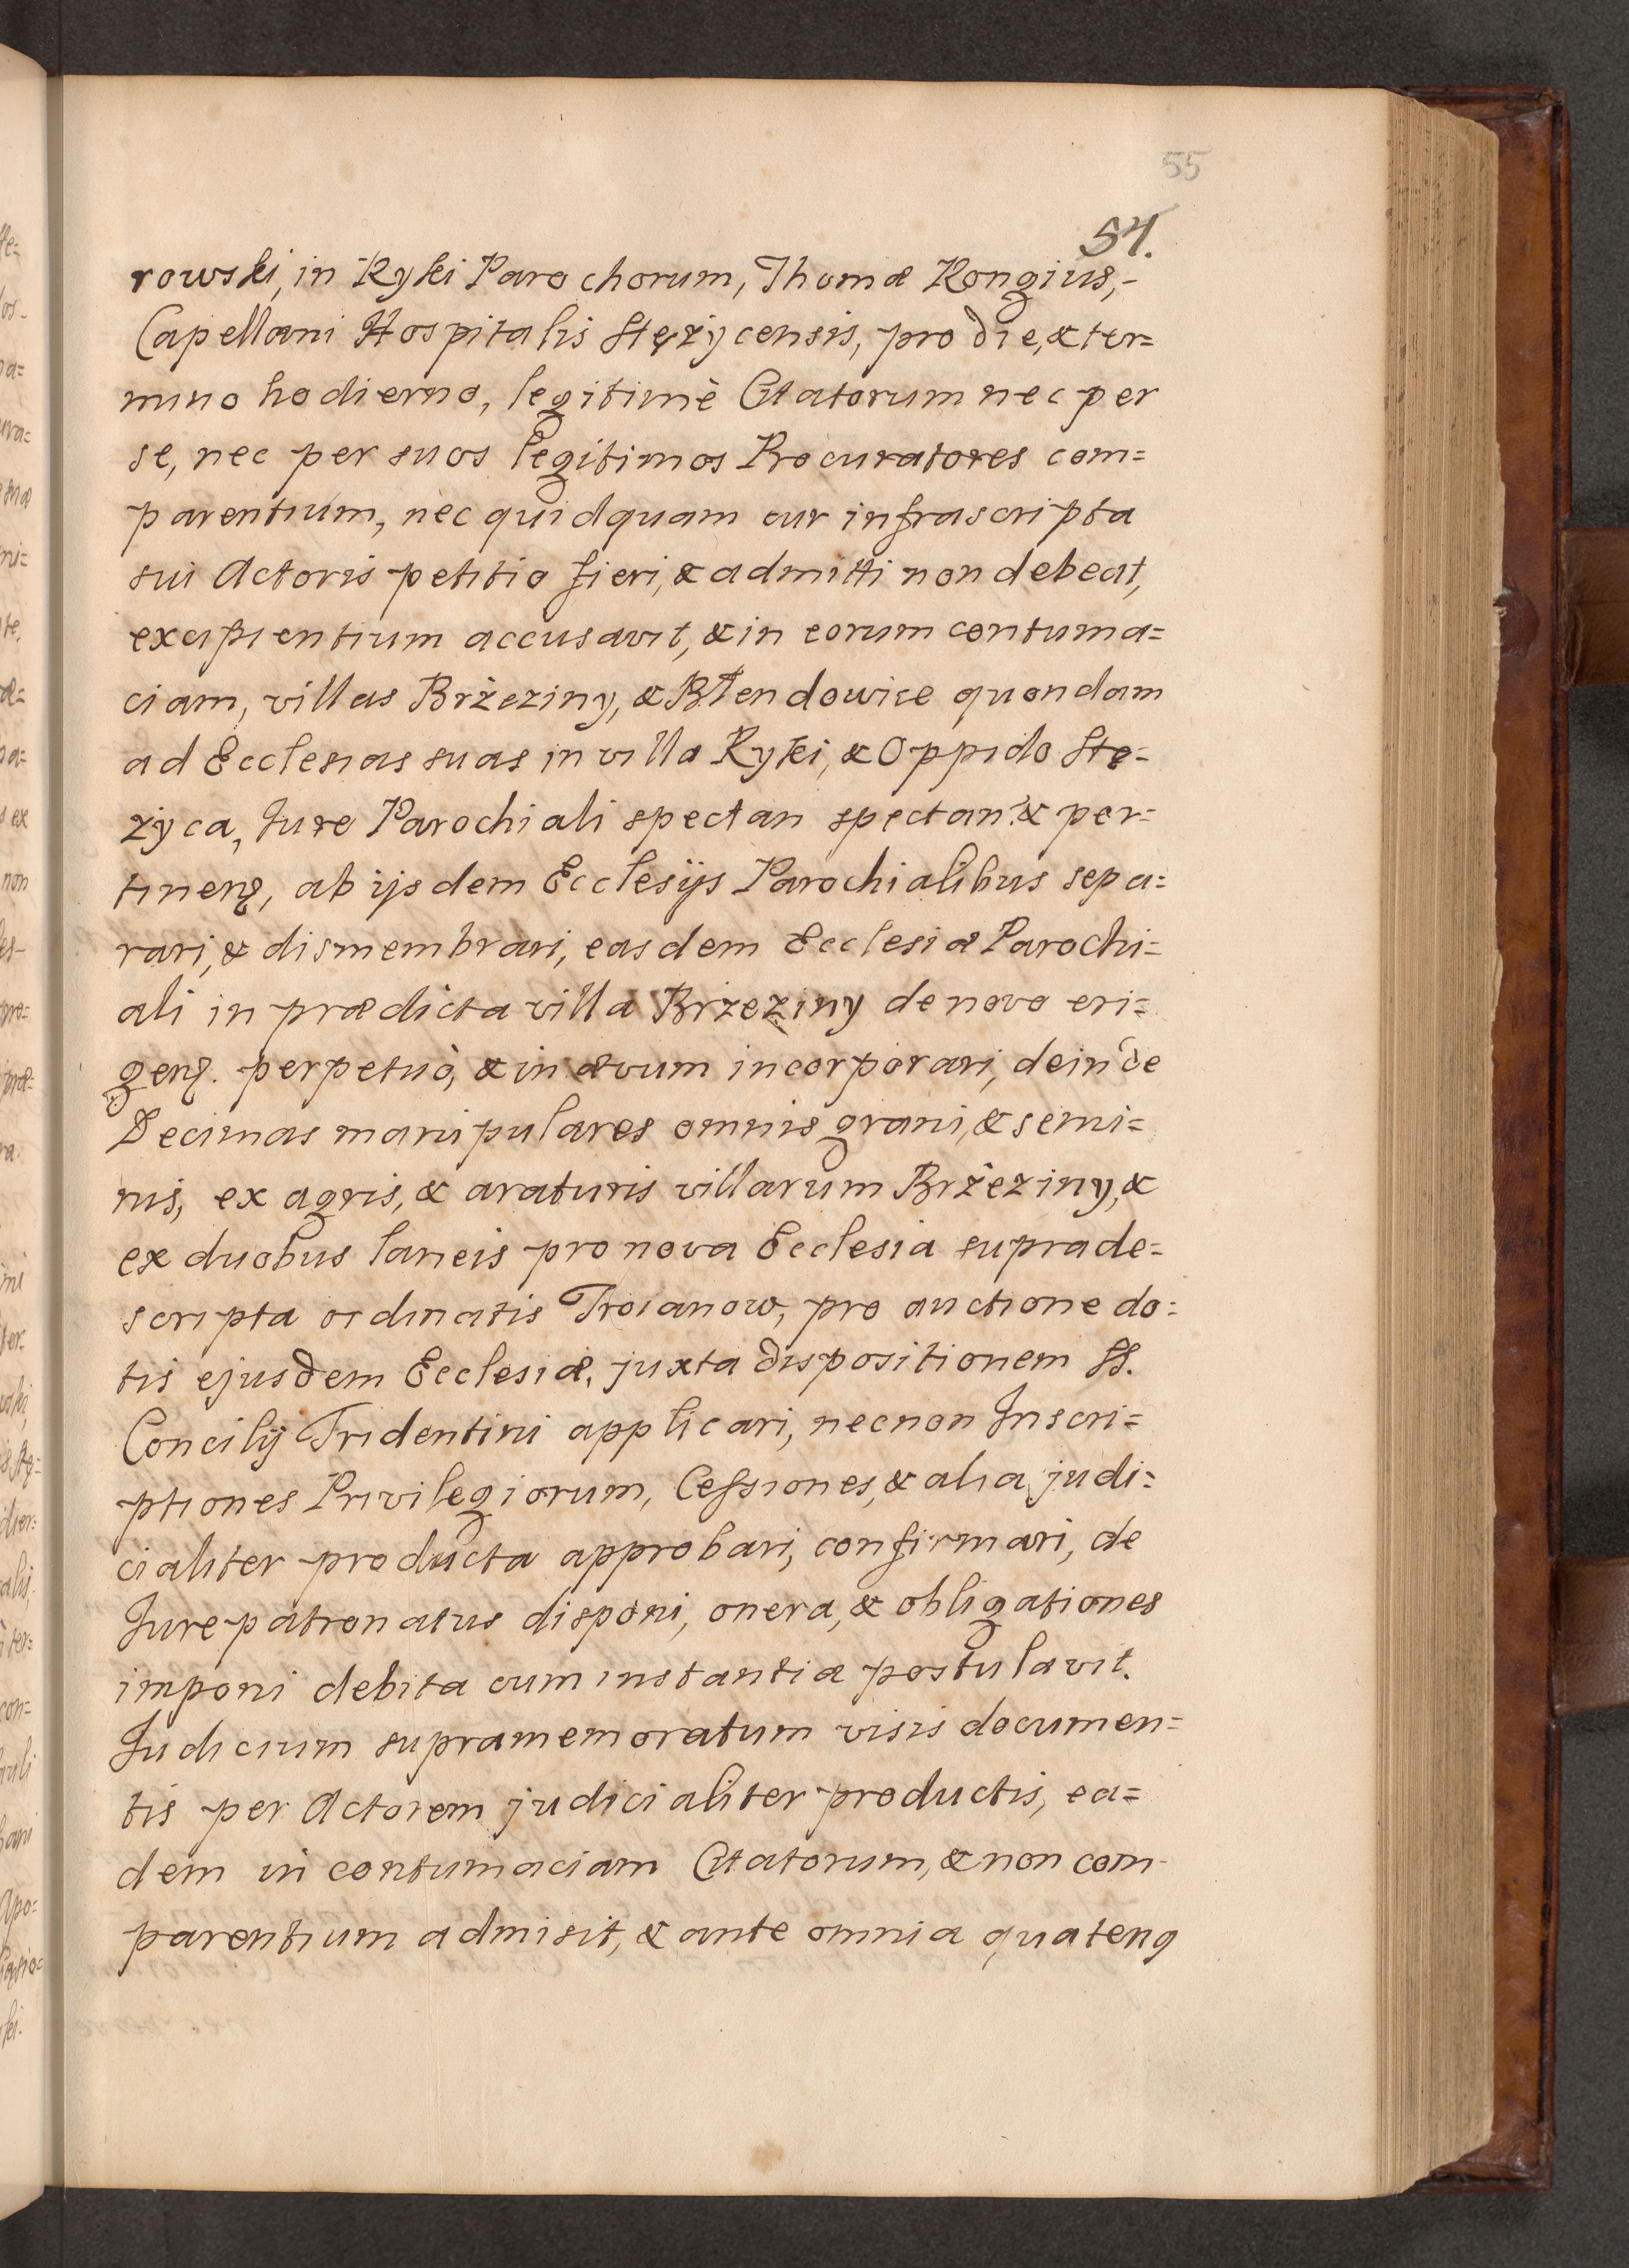 55
54.
rowski, in Ryki Parochorum, Thomæ Rongius,-
Capellani Hospitalis Stężycensis, pro die, & ter=
mino hodierno, legitimè Citatorum nec per
se, nec per suos legitimos Procuratores com=
parentium, nec quidquam cur infrascripta
sui Actoris petitio fieri, & admitti non debeat,
excipientium accusavit, & in eorum contuma=
ciam, villas Brżeziny, & Błendowice quondam
ad Ecclesias suas in villa Ryki, & Oppido Stę=
życa, Jure Parochiali spectan spectan: & per=
tinenꝗ, ab ijsdem Ecclesijs Parochialibus sepa=
rari, & dismembrari, easdem Ecclesiæ Parochi=
ali in prædicta villa Brzeziny de novo eri=
genꝗ. perpetuò, & in ævum incorporari, deinde
Decimas manipulares omnis grani, & semi=
nis, ex agris, & araturis villarum Brżeziny, &
ex duobus laneis pro nova Ecclesia suprade=
scripta ordinatis Troianow, pro auctione do=
tis ejusdem Ecclesiæ, juxta dispositionem SS.
Concilij Tridentini applicari, necnon Inscri=
ptiones Privilegiorum, Cessiones, & alia judi=
cialiter producta approbari, confirmari, de
Jurepatronatus disponi, onera, & obligationes
imponi debita cum instantia postulavit.
Judicium supramemoratum visis documen=
tis per Actorem judicialiter productis, ea=
dem in contumaciam Citatorum, & non com-
parentium admisit, & ante omnia quatenq